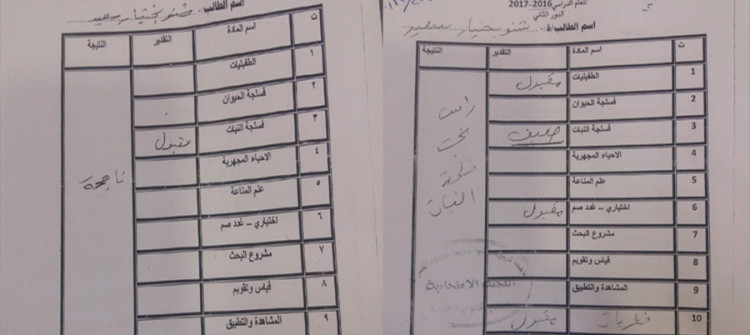 للعام الدراسي 2016-2017
الدور الثاني
اسم الطالب/ة: شنو بختيار سعيد
ت اسم المادة التقدير النتيجة
1 الطفيليات مقبول
2 فسلجة الحيوان
3 فسلجة النبات ضعيف
4 الاحياء المجهرية
5 علم المناعة
6 اختياري – غدد صم مقبول
7 مشروع البحث
8 قياس وتقويم
9 المشاهدة والتطبيق
10 فطريات مقبول
فسلجة
النبات
اللجنة الامتحانية
اسم الطالب: شنو بختيار سعيد
ت اسم المادة التقدير النتيجة
١ الطفيليات
٢ فسلجة الحيوان
٣ فسلجة النبات مقبول
٤ الاحياء المجهرية
٥ علم المناعة
٦ اختياري – غدد صم
٧ مشروع البحث
٨ قياس وتقويم
٩ المشاهدة والتطبيق
ناجحة